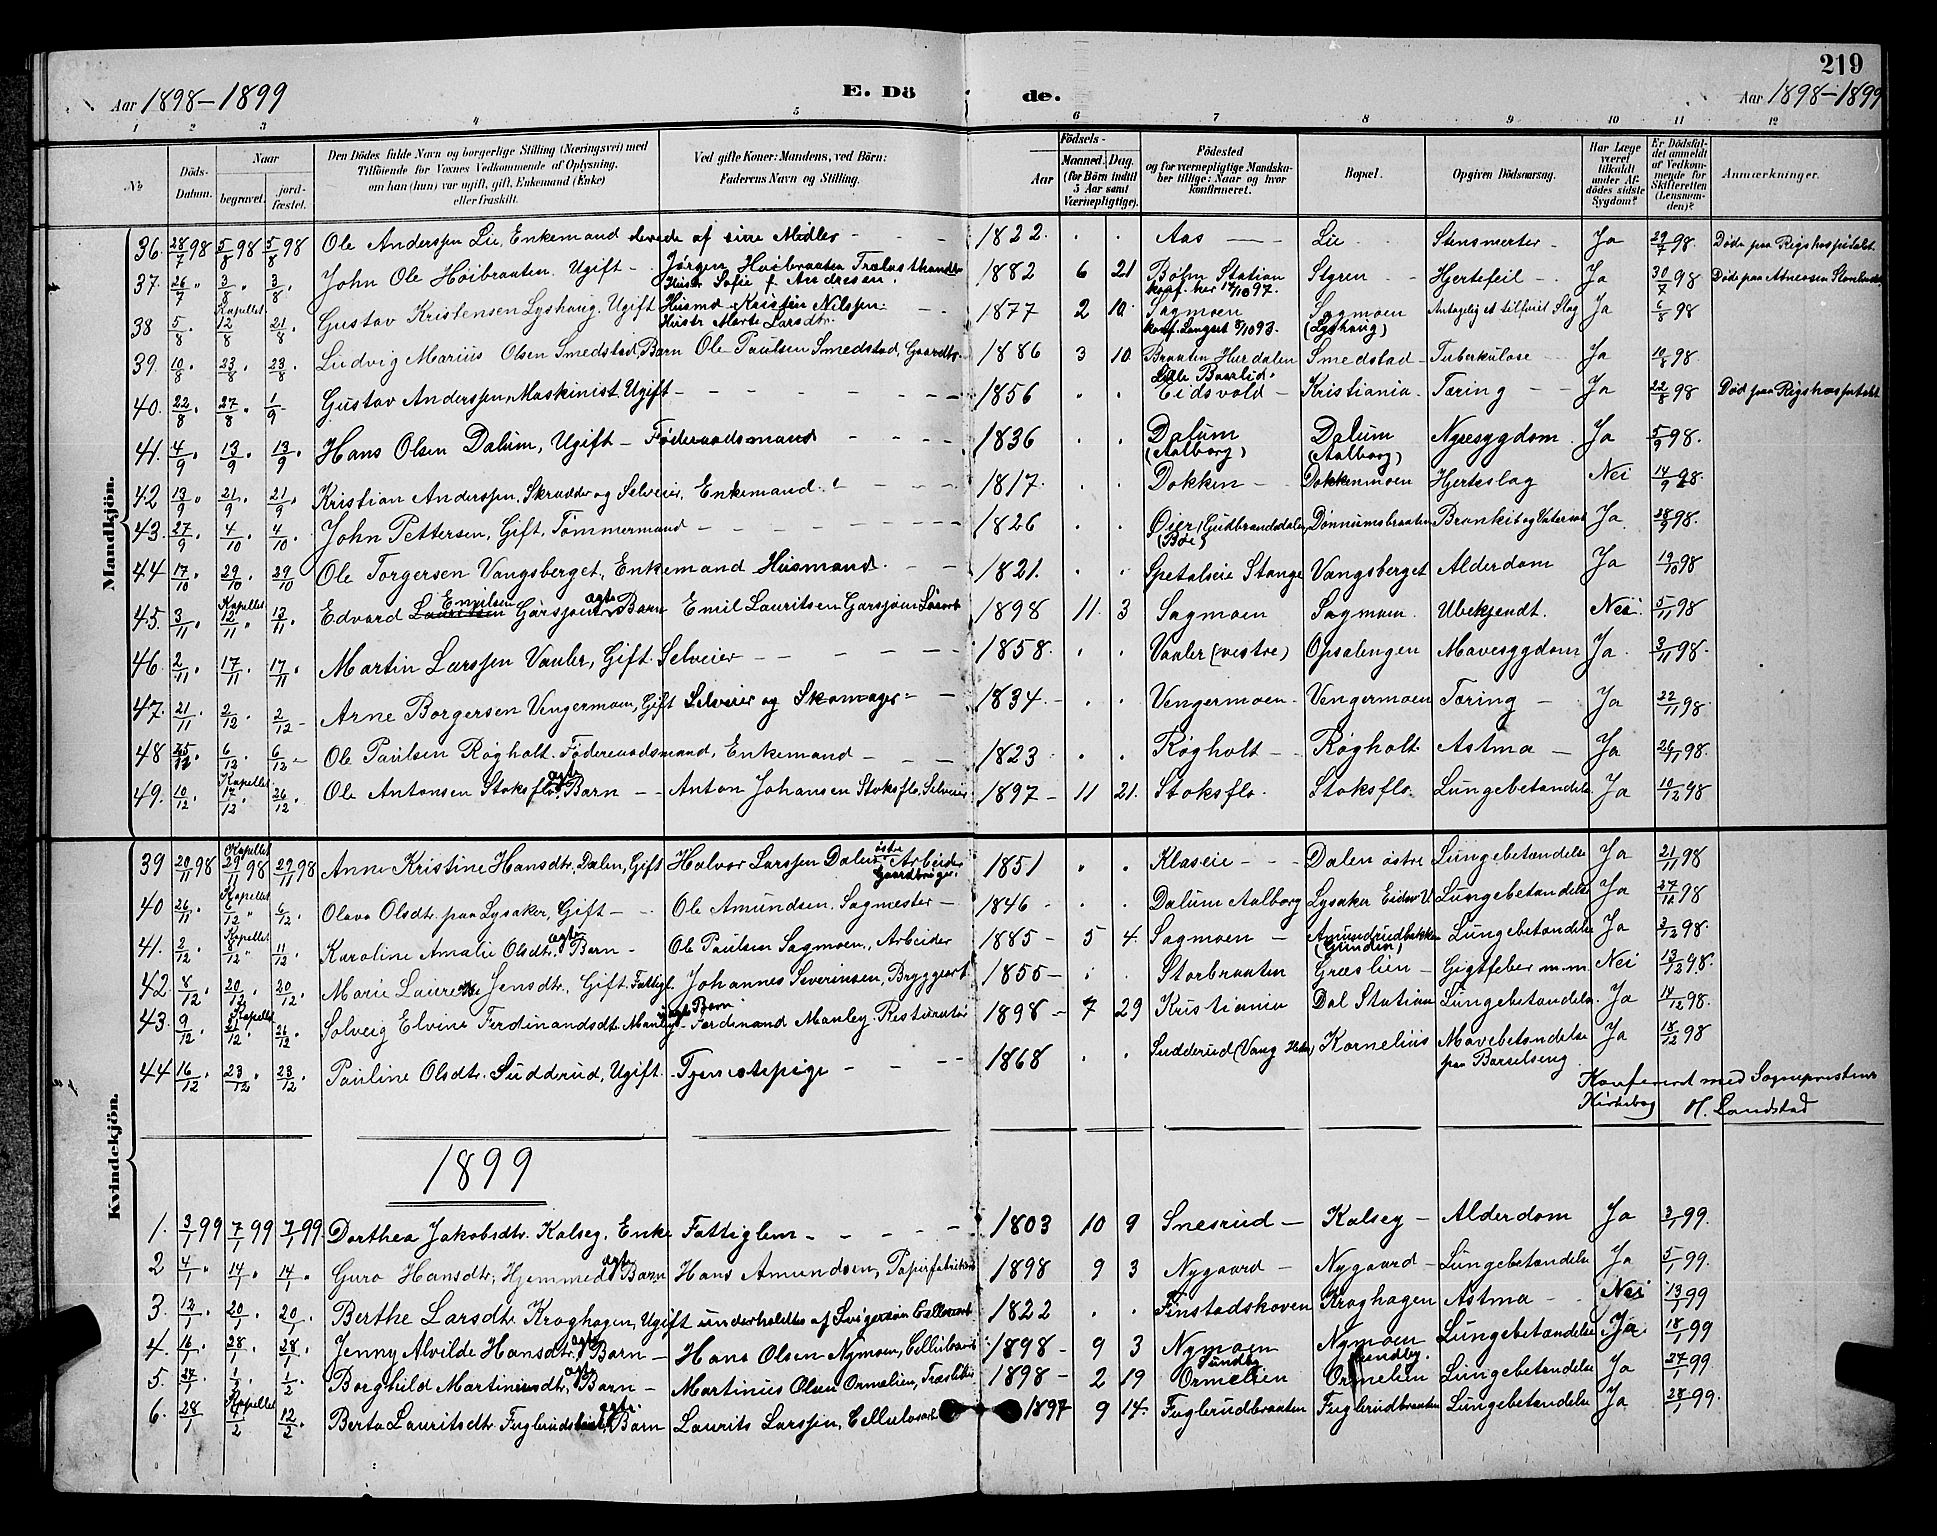 219
Aar 1898-1899 E. Dö de. Aar 1898-1899
1 2 3 4 5 6 7 8 9 10 11 12
№ Döds-Datum. Naar begravet. jordfæstet. Den Dödes fulde Navn og borgerlige Stilling (Næringsvei) med Tilföiende for Voxnes Vedkommende af Oplysning, om han (hun) var ugift, gift, Enkemand (Enke) eller fraskilt. Ved gifte Koner: Mandens, ved Börn: Faderens Navn og Stilling. Födsels- Aar Maaned. Dag. (for Börn indtil 5 Aar samt Værnepligtige). Födested og for værnepligtige Mandskaber tillige: Naar og hvor konfirmeret. Bopæl. Opgiven Dödsaarsag. Har Læge været tilkaldt under Afdödes sidste Sygdom? Er Dödsfaldet anmeldt af Vedkommende for Skifteretten (Lensmanden)? Anmærkninger.
Mandkjön.
36. 28/7 98 5/8 98 5/8 98 Ole Anderssen Lie, Enkemand levede af sine Midler 1822. Aas Lie Stensmerter Ja 29/7 98. Døde paa Rigshospitalet
37. 26/7 " 3/8 " 3/8 " John Ole Hoibraaten. Ugift Jørgen Hoibraaten Trælasthandler Hustr Sofie f. Andresen. 1882 6 21 Bøhn Station konf. her 17/10 97. Styren Hjertefeil Ja 30/7 98
38 5/8 Kapellet 12/8 21/8 Gustav Kristensen Lyshaug. Ugift Husmd Kristen Nilssen Hustr Marte Larsdtr. 1877 2 10. Sagmoen konf. Langset 93. Sagmoen (Lyshaug) Antagelig et tilføiet Slag Ja 6/8 98
39. 10/8 23/8 23/8 Ludvig Marius Olsen Smedstad, Barn Ole Paulsen Smedstad, Gaardbr. 1886 3 10. Braaten Hurdalen Smedstad Tuberkulose Ja 10/8 98
40. 22/8 27/8 1/9 Gustav Anderssen, Maskinist, Ugift 1856 Eidsvold Kristiania Tæring Ja 22/8 98 Død paa Rigshospitalet
41. 4/9 13/9 13/9 Hans Olsen Dalum, Ugift Føderaadsmand 1836 Dalum (Aalborg) Dalum (Aalborg) Nyresygdom Ja 5/9 98.
42 13/9 21/9 21/9 Kristian Anderssen, Skrædder og Selveier, Enkemand. 1817. Dokken Dokkenmoen Hjerteslag Nei 14/9 98.
43. 27/9 4/10 4/10 John Pettersen, Gift, Tømmermand 1826 Øier (Gudbrandsdalen (Bøe) Dønnumsbraaten Bronkit og Vatersot Ja 28/9 98.
44 17/10 29/10 29/10 Ole Torgersen Vangsberget, Enkemand Husmand 1821. Spetalseie Stange Vangsberget Alderdom Ja 19/10 98
45. 3/11 Kapellet 12/11 13/11 Edvard Emilsen Garsjøen, ægte Barn Emil Lauritsen Garsjøen 1898 11. 3 Sagmoen Sagmoen Ubekjendt. Nei 5/11 98
46. 2/11 17/11 17/11 Martin Larssen Vauler, Gift. Selveier 1858. Vauler (vestre) Opsalengen Mavesygdom Ja 3/11 98.
47. 21/11 2/12 2/12 Arne Borgersen Vengermoen, Gift Selveier og Skomager 1834 Vengermoen Vengermoen Tæring Ja 22/11 98.
48 6/12 6/12 Ole Paulsen Røgholt. Føderaadsmand, Enkemand 1823 Røgholt Røgholt Astma Ja 26/11 98.
49. 10/12 Kapellet 17/12 26/12 Ole Antonsen Stoksflo, ægte Barn Anton Johansen Stoksflo, Selveier 1897 11 21. Stoksflo. Stoksflo. Lungebetændelse Ja 10/12 98
Kvindekjön.
39 20/11 98 Kapellet 29/11 98 29/11 98 Anne Kristine Hansdtr. Dalen, Gift Halvor Larssen Dalen østre Arbeider Gaardbruger. 1851 Klaseie Dalen østre Lungebetændelse Ja 21/11 98
40 26/11 Kapellet 6/12 6/12 Olava Olsdtr. paa Lysaker, Gift Ole Amundsen, Sagmester 1846 Dalum Aalborg Lysaker Eidsv. V Lungebetændelse Ja 98
41. 2/12 Kapellet 11/12 Karoline Amalie Olsdtr. ægte Barn Ole Paulsen Sagmoen, Arbeider 1885 5 4. Sagmoen Amundrudbakken Lungebetændelse Ja 3/12 98.
42 8/12 20/12 20/12 Marie Laurense Jensdtr. Gift Fattigl. Johannes Severinsen, Bryggearb. 1855 Storbraaten Græslien Gigtfeber m.m. Nei 13/12 98.
43. 9/12 Kapellet 21/12 26/12 Solveig Elvine Ferdinandsdtr. Manley ægte Barn Ferdinand Manley, Restauratør 1898 7 29 Kristiania Dal Station Lungebetændelse. Ja 14/12 98.
44 16/12 23/12 23/12 Pauline Olsdtr. Sudderud, Ugift. Tjenestepige 1868 Sudderud (Vang Hdm) Kornelius Mavebetændelse paa Barselseng Ja 18/12 98
Konfereret med Sogneprestens Kirkebog H. Landstad
1899
1. 3/1 99 7/1 99 7/1 99 Dorthea Jakobsdtr. Kalsey. Enke Fattiglem 1803 10 9 Snesrud Kalsey Alderdom Ja 3/1 99.
2 4/1 14/1 14/1 Guro Hansdtr. Hjemmed. ægte Barn Hans Amundsen, Papirfabrikarb. 1898 9 3 Nygaard Nygaard Lungebetændelse Ja 5/1 99.
3. 12/1 20/1 20/1 Berthe Larsdtr. Kroghagen, Ugift underholdtes af Svigersøn 1822 Finstadskoven Kroghagen Astma Nei 13/1 99
4. 16/1 28/1 28/1 Jenny Alvilde Hansdtr. ægte Barn Hans Olsen Nymoen, Cellulosearb 1898 9 3 Nymoen Nymoen Lungebetændelse Ja 18/1 99
5. 27/1 1/2 Borghild Martinusdtr, ægte Barn Martinus Olsen Ormelien, Træsliber 1898 2 19 Sundby Ormelien Sundby. Ormelien Lungebetændelse Ja 27/1 99.
6. 28/1 Kapellet 4/2 12/2 Berta Lauritsdtr. Fuglerudbraaten, ægte Barn Laurits Larssen, Cellulosearb 1897 9 14. Fuglerudbraaten Fuglerudbraaten Lungebetændelse Ja 28/1 99.